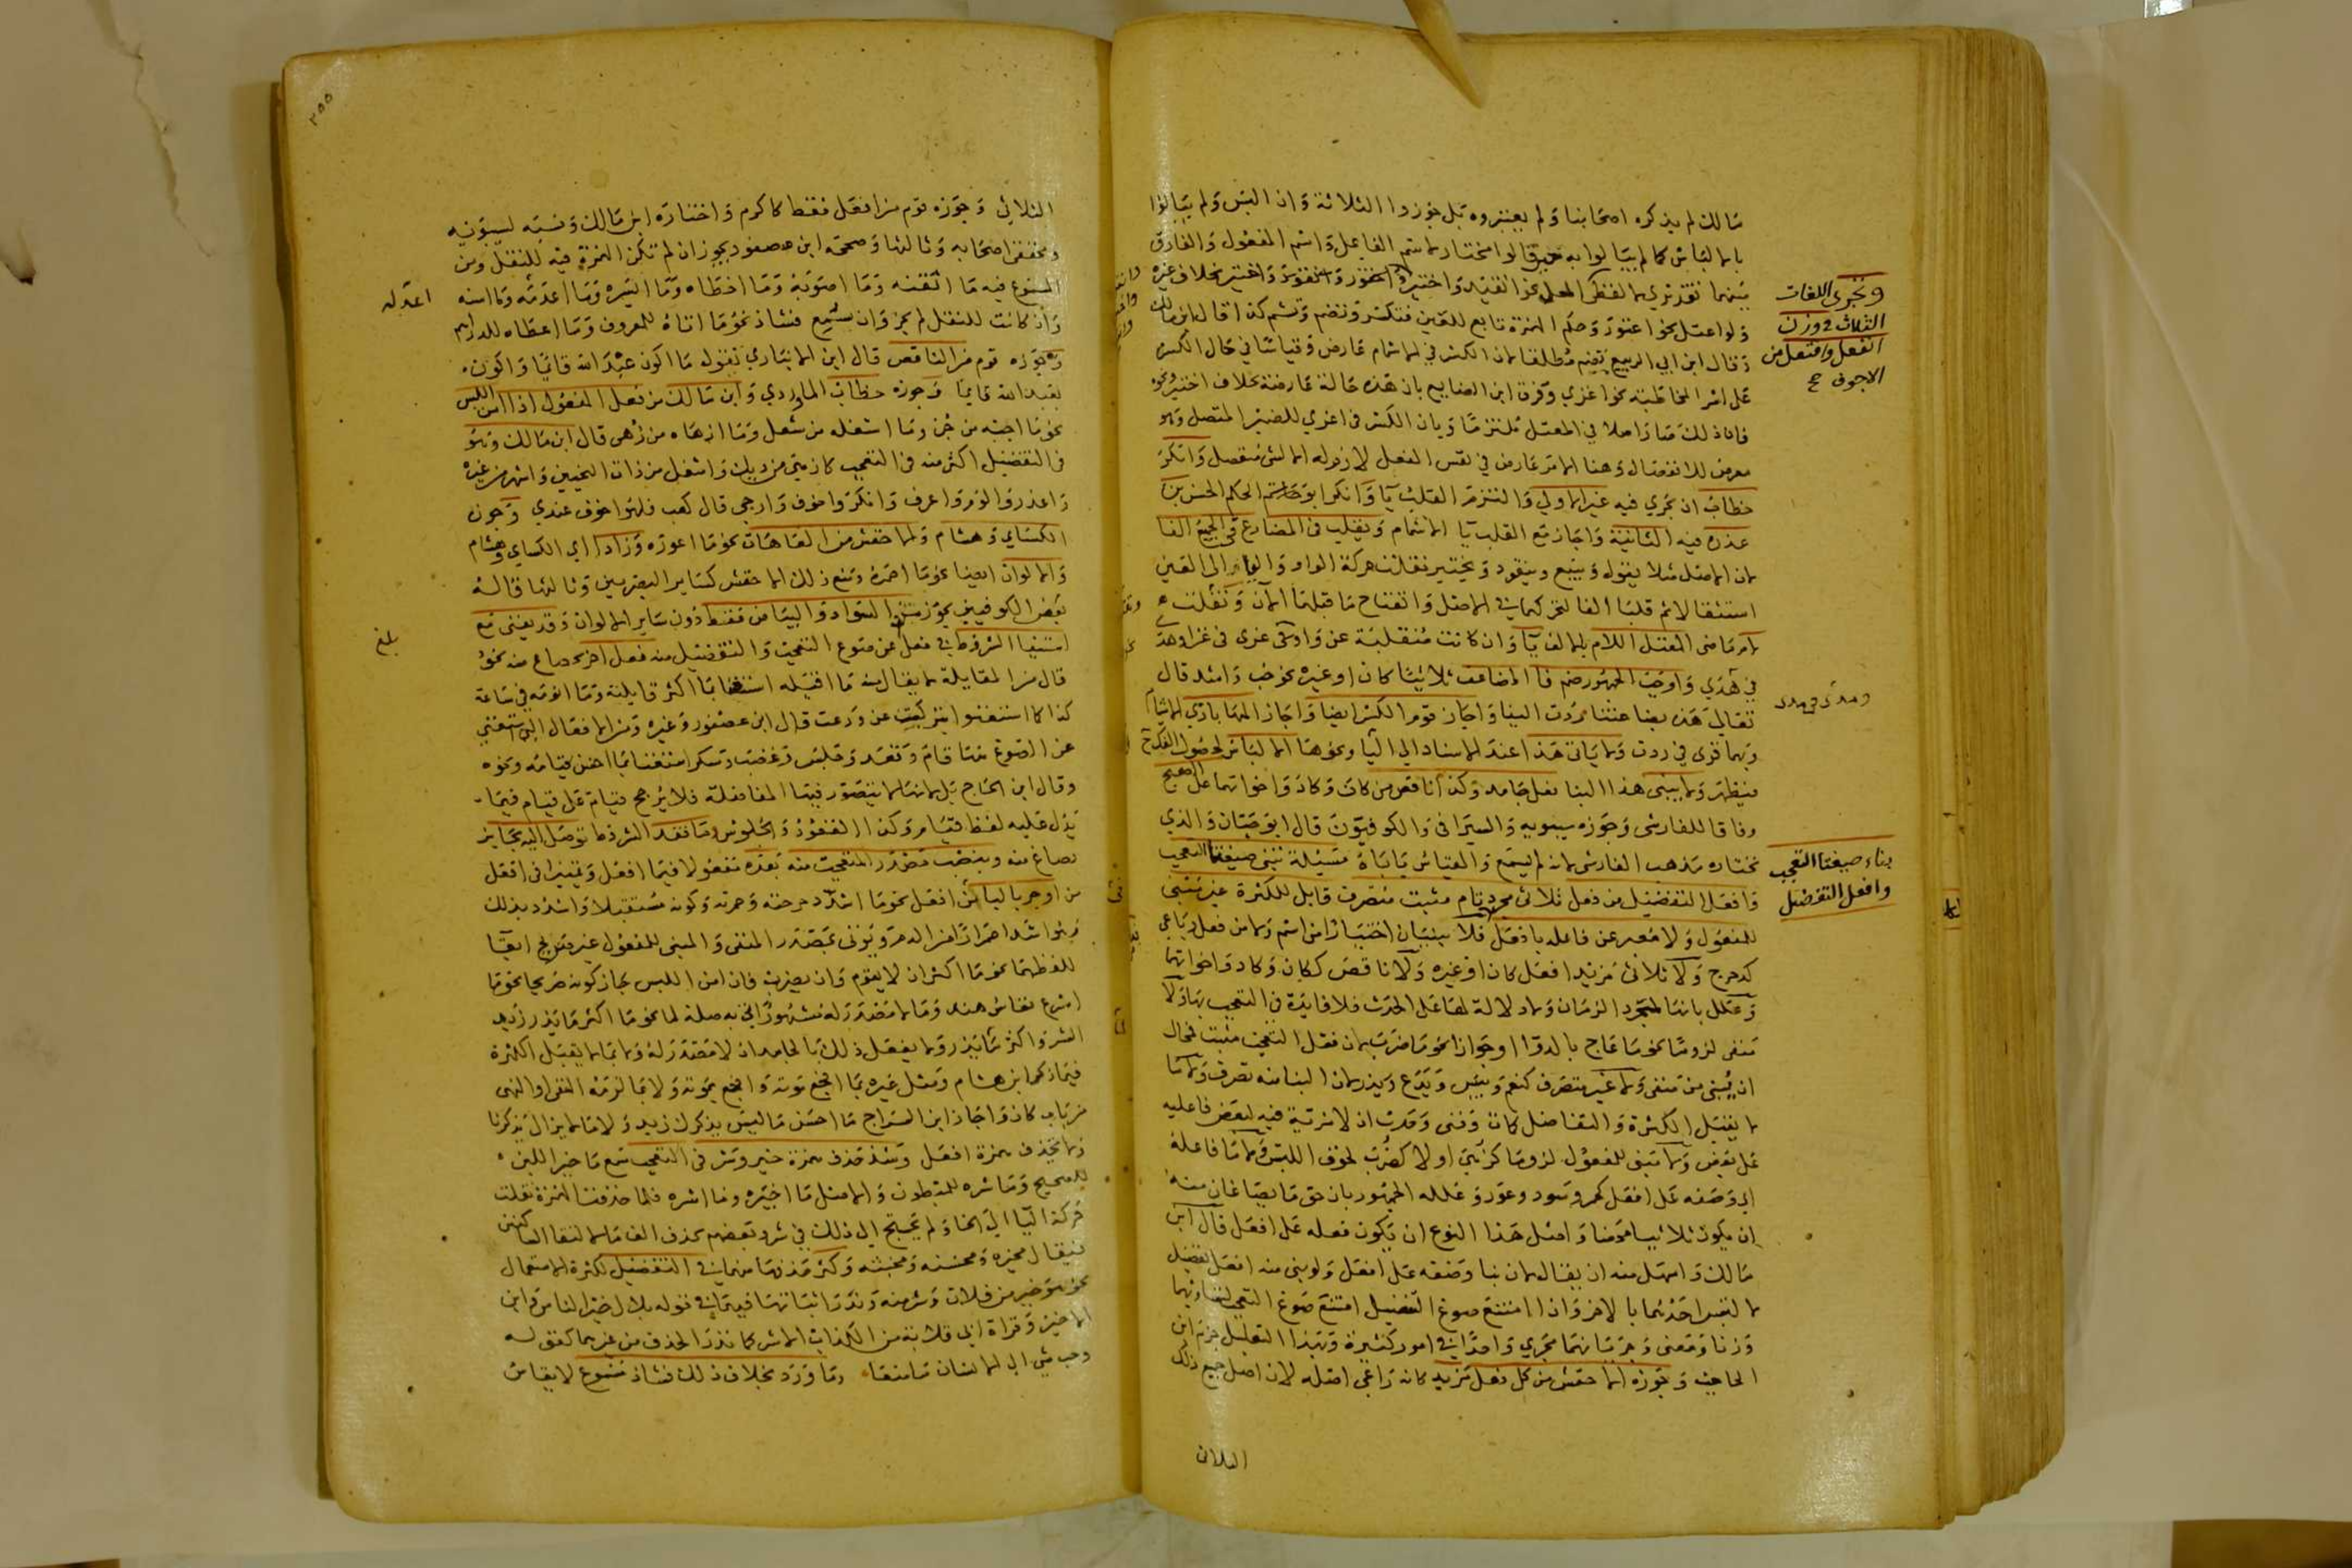 مالك لم يذكره اصحابنا ولم يعتبروه بل جوزوا الثلاثة وان البس ولم يبالوا
بالالباس كما لم يبالوا به حين قالوا مختار لاسم الفاعل واسم المفعول والفارق
بينهما تقديري لا لفظي
ولو اعتل نحو اعتور وحكم الهمزة تابع للعين فتكسر وتضم وتشم كذا قال ابن مالك
وقال ابن ابي الربيع يضم مطلقا لان الكسر في الاشمام عارض وقياسا في حال الكسر
على اسر المخاطبة نحو اغزي وفرق ابن الضايع بان هذه حالة عارضة بخلاف اختير ونحوه
فان ذلك صار اصلا في المعتل ملتزما وبان الكسر في اغزي للضمير المتصل وهو
معرض للانفصال وهنا الامر عارض في نفس الفعل لا زواله الى شئ منفصل وانكر
خطاب ان يجري فيه غير الاولى والتزم القلب يا وانكر ابو الحكم الحسن بن
عذرة فيه الثانية واجاز مع القلب يا الاشمام ويقلب في المضارع في الجميع الفا
لان الاصل مثلا يقول ويبيع وينقود ويختير نقلت حركة الواو واليا الى العين
استثقالا ثم قلبا الفا لتحركهما في الاصل وانفتاح ما قبلهما الآن وتقلب
لام ماضي المعتل اللام بالالف يا وان كانت منقلبة عن واو نحو غزى في غزا وهدى
في هدى واوجب الجمهور ضم فا المضاعف ثلاثيا كان او غيره نحو حب واشتد قال
تعالى هذه بضاعتنا ردت الينا واجاز قوم الكسر ايضا واجاز المهاباذي الاشمام
وبهما قرئ في ردت ولا ياتي هذا عند الاسناد الى اليا ونحوها الالباس لحصول الفك
فيظهر ولا يبنى هذا البنا فعل جامد وكذا ناقص من كان وكاد واخواتهما على الصحيح
وفاقا للفارسي وجوزه سيبويه والسيرافي والكوفيون قال ابو حيان والذي
نختاره مذهب الفارسي لانه لم يسمع والقياس ياباه مسئلة تبنى صيغتا التعجب
وافعل التفضيل من فعل ثلاثي مجرد تام مثبت متصرف قابل للكثرة غير مبني
للمفعول ولا معبر عن فاعله بافعل فلا يبنيان اختيارا من اسم ولا من فعل رباعي
كدحرج ولا ثلاثي مزيد افعل كان او غيره ولا ناقص ككان وكاد واخواتهما
وعلل بانها لمجرد الزمان ولا دلالة لها على الحدث فلا فائدة في التعجب بها ولا
منفي لزوما نحو ما عاج بالدوا او جوازا نحو ما ضرب لان فعل التعجب مثبت فمحال
ان يبنى من منفي ولا غير متصرف كنعم وبيس ويدع ويذر لان البنا منه تصرف ولا ما
لا يقبل الكثرة والتفاضل كمات وفني وحدث ان لا مزية فيه لبعض فاعليه
على بعض ولا مبني للمفعول لزوما كزهي او لا كضرب لخوف اللبس ولا ما فاعله
اي وصفه على افعل كحمر وسود وعور وعلله الجمهور بان حق ما يصاغان منه
ان يكون ثلاثيا محضا واصل هذا النوع ان يكون فعله على افعل قال ابن
مالك واسهل منه ان يقال لان بنا وصفه على افعل ولو بني منه افعل تفضيل
لالتبس احدهما بالاخر واذا امتنع صوغ التفضيل امتنع صوغ التعجب لتساويهما
وزنا ومعنى وجريانهما مجرى واحدا في امور كثيرة وبهذا التعليل جزم ابن
الحاجب وجوزه الاخفش من كل فعل مزيد كانه راعى اصله لان اصل جميع ذلك
الثلاثي
وتجرى اللغات
الثلاث في وزن
انفعل وافتعل من
الاجوف
بناء صيغتا التعجب
وافعل التفضيل
٢٥٥
الثلاثي وجوزه قوم من افعل فقط كاكرم واختاره ابن مالك ونسبه لسيبويه
ومحققي اصحابه وثالثها وصححه ابن عصفور يجوز ان لم تكن الهمزة فيه للنقل ومن
المسموع فيه ما اتقنه وما اصوبه وما اخطاه وما ايسره وما اعدمه وما اسنه
وان كانت للنقل لم يجز وان سمع فشاذ نحو ما اتاه للمعروف وما اعطاه للدراهم
وجوزه قوم من الناقص قال ابن الانباري تقول ما اكون عبد الله قائما واكون
بعبد الله قايما وجوزه خطاب الماردي وابن مالك من فعل المفعول اذا امن اللبس
نحو ما اجنه من جن وما اشغله من شغل وما ازهاه من زهي قال ابن مالك وهو
في التفضيل اكثر منه في التعجب كازهى من ديك واشغل من ذات النحيين واشهر من غيره
واعذر والوم واعرف وانكر واخوف وارجى قال كعب فلهو اخوف عندي وجوزه
الكسائي وهشام والاخفش من العاهات نحو ما اعوره وزاد اي الكساي وهشام
والالوان ايضا نحو ما احمره ومنع ذلك الاخفش كساير البصريين وثالثها قاله
بعض الكوفيين يجوز من السواد والبياض فقط دون ساير الالوان وقد يغني مع
استيفا الشروط في فعل عن مصوغ التعجب والتفضيل منه فعل اخر يصاغ منه نحو
قال من المقايلة لا يقال منه ما اقيله استغناء بما اكثر قايلته وما انومه في ساعة
كذا كما استغنوا بتركت عن ودعت قال ابن عصفور وغيره ومن الافعال التي استغني
عن الصوغ منها قام وقعد وجلس وغضب وسكر استغناء بما احسن قيامه ونحوه
وقال ابن الحاج بل لانها لا يتصور فيها المفاضلة فلا يرجح قيام على قيام فيما
يدل عليه لفظ قيام وكذا القعود والجلوس وما فقد الشروط توصل اليه بجايز
يصاغ منه وينصب مصدر المتعجب منه بعده مفعولا فيما افعل وتمييزا في افعل
من او جر بالبا في افعل نحو ما اشد دحرجته وحمرته وكونه مستقبلا واشدد بذلك
وهو اشد احمرارا من الدم ويؤتى بمصدر المنفي والمبني للمفعول غير صريح ابقاء
للفظهما نحو ما اكثر ان لا يقوم وان يضرب فان امن اللبس جاز كونه صريحا نحو ما
اسرع نفاس هند وما لا مصدر له مشهور اتي به صلة لما نحو ما اكثر ما يذر زيد
الشر واكثر بما يذر ولا يفعل ذلك بالجامد ان لا مصدر له ولا بما لا يقبل الكثرة
فيما ذكره ابن هشام ومثل غيره بما افجع موته وافجع بموته ولا بما لزمه النفي او النهي
من باب كان واجاز ابن السراج ما احسن ما ليس يذكرك زيد ولا ما لا يزال يذكرنا
ولا تحذف همزة افعل وشذ حذف همزة خير وشر في التعجب سمع ما خير اللبن
للصحيح وما شره للمبطون والاصل ما اخيره وما اشره فلما حذفت الهمزة نقلت
حركة اليا الى الخا ولم يحتج الى ذلك في شر وبعضهم يحذف الف ما لالتقا الساكنين
فيقال مخيره ومحسنه ومخبثه وكثر حذفها منهما في التفضيل لكثرة الاستعمال
نحو هو خير من فلان وشر منه وندر اثباتها فيهما في قوله بلال خير الناس وابن
الاخير وقراة ابي قلابة من الكذاب الاشر كما ندر الحذف من غيرهما كقوله
وحب شئ الى الانسان ما منعا وما ورد بخلاف ذلك فشاذ مسموع لا يقاس
بلغ